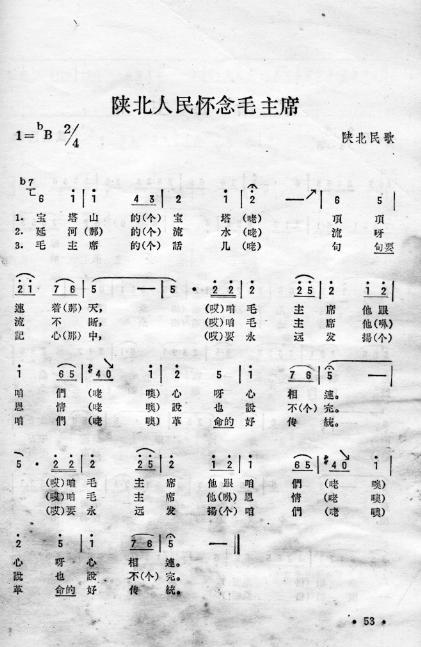 陕北人民怀念毛主席
1=ᵇB 2/4
陕北民歌
1. 宝 塔 山 的(个) 宝 塔(咾) 項 項
2. 延 河(那) 的(个) 流 水(咾) 流 呀
3. 毛 主 席 的(个) 話 儿(咾) 句 句要
連 着(那)天, (哎)咱 毛 主 席 他跟
流 不 断, (哎)咱 毛 主 席 他(咻)
記 心(那)中, (哎)要 永 远 发 揚(个)
咱 們(咾 噢)心 呀 心 相 連。
恩 情(咾 噢)說 也 說 不(个)完。
咱 們(咾 噢)革 命的 好 传 統。
(哎)咱 毛 主 席 他跟 咱 們(咾 噢)
(哎)咱 毛 主 席 他(咻) 恩 情(咾 噢)
(哎)要 永 远 发 揚(个) 咱 們(咾 噢)
心 呀 心 相 連。
說 也 說 不(个)完。
革 命的 好 传 統。
• 53 •